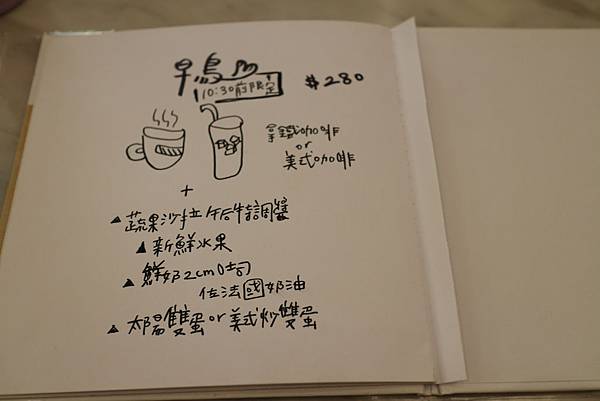 早鳥
10:30前限定
$280
拿鐵咖啡
or
美式咖啡
+
▲蔬果沙拉佐特調醬
▲新鮮水果
▲鮮奶2cm吐司
佐法國奶油
▲太陽雙蛋or美式炒雙蛋